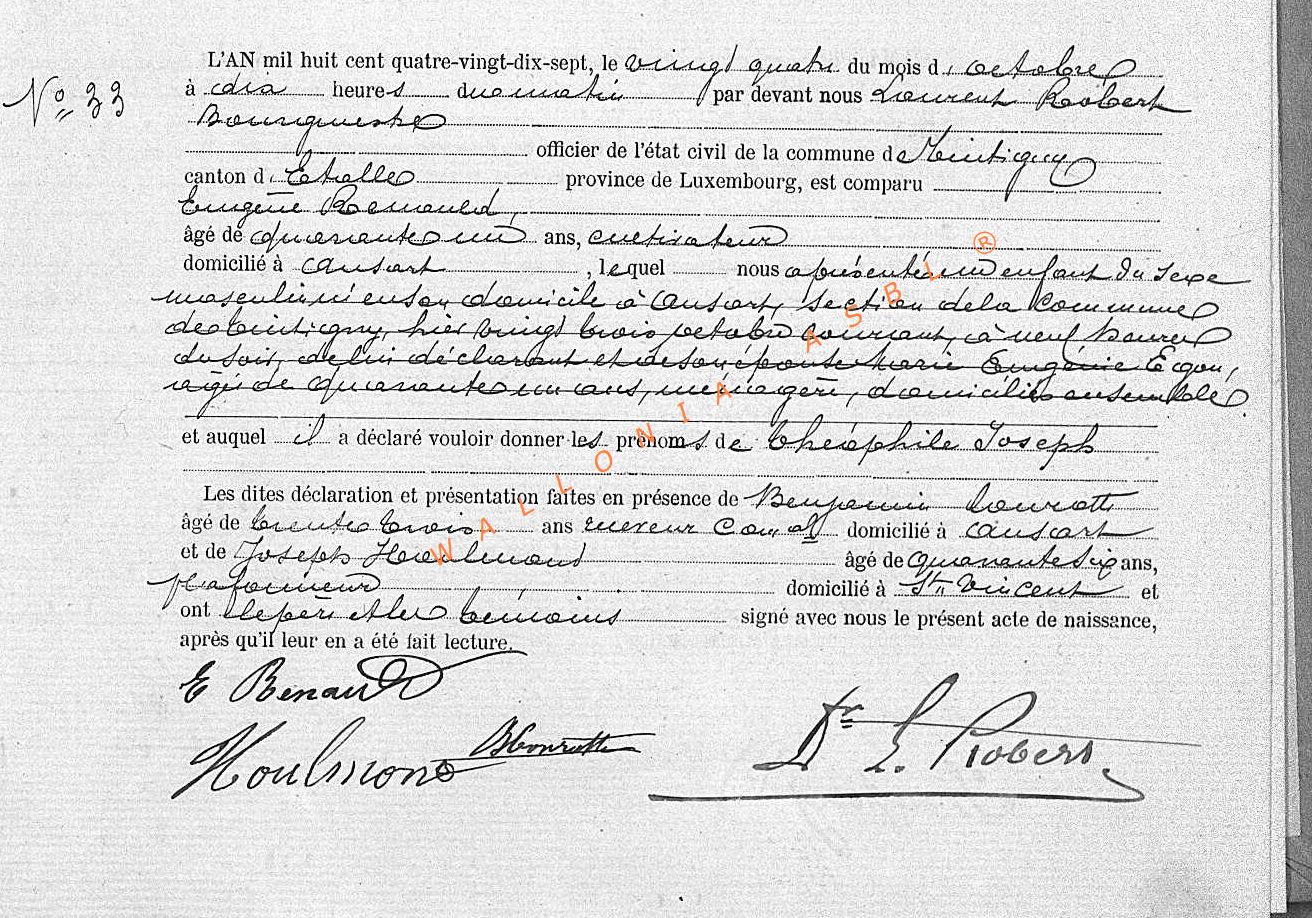 L'AN mil huit cent quatre-vingt-dix-sept, le vingt quatre du mois d'octobre
N° 33
à dix heures du matin par devant nous Laurent Robert
Bourgmestre
officier de l'état civil de la commune de Tintigny
canton d'Etalle province de Luxembourg, est comparu
Eugène Renauld,
âgé de quarante un ans, cultivateur
domicilié à Ansart, lequel nous a présenté un enfant du sexe
masculin né en son domicile à Ansart, section de la commune
de Tintigny, hier vingt trois octobre courant, à neuf heures
du soir, de lui déclarant et de son épouse Marie Eugénie
âgée de quarante un ans, ménagère, domiciliés ensemble
et auquel il a déclaré vouloir donner les prénoms de Théophile Joseph
Les dites déclaration et présentation faites en présence de Benjamin Conrotte
âgé de trente trois ans receveur comal domicilié à Ansart
et de Joseph Houlmont âgé de quarante six ans,
plafonneur domicilié à St Vincent et
ont le père et les témoins signé avec nous le présent acte de naissance,
après qu'il leur en a été fait lecture.
E Renauld
Houlmont BConrotte
Dr L. Robert
WALLONIA ASBL ®